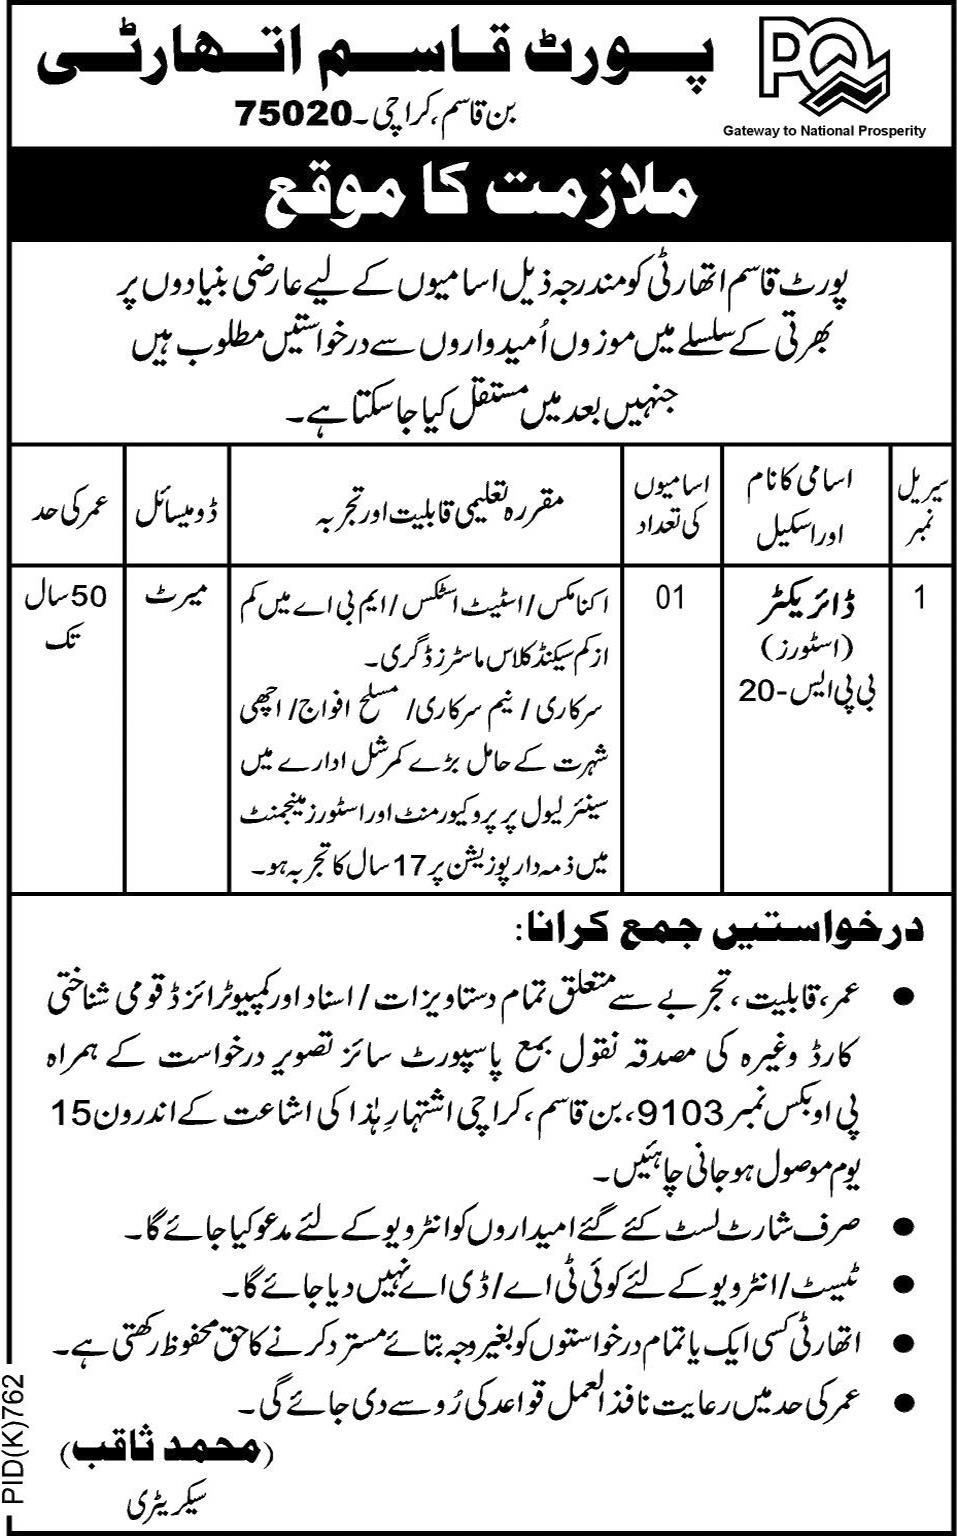 پورٹ قاسم اتھارٹی
بن قاسم، کراچی۔75020
PQA
Gateway to National Prosperity
ملازمت کا موقع
پورٹ قاسم اتھارٹی کو مندرجہ ذیل اسامیوں کے لیے عارضی بنیادوں پر
بھرتی کے سلسلے میں موزوں اُمیدواروں سے درخواستیں مطلوب ہیں
جنہیں بعد میں مستقل کیا جاسکتا ہے۔
سیریل نمبر
اسامی کا نام اور اسکیل
اسامیوں کی تعداد
مقررہ تعلیمی قابلیت اور تجربہ
ڈومیسائل
عمر کی حد
1
ڈائریکٹر
(اسٹورز)
بی پی ایس-20
01
اکنامکس/ اسٹیٹ اسٹکس/ ایم بی اے میں کم
از کم سیکنڈ کلاس ماسٹرز ڈگری۔
سرکاری/ نیم سرکاری/ مسلح افواج/ اچھی
شہرت کے حامل بڑے کمرشل ادارے میں
سینئر لیول پر پروکیورمنٹ اور اسٹورز مینجمنٹ
میں ذمہ دار پوزیشن پر 17 سال کا تجربہ ہو۔
میرٹ
50 سال
تک
درخواستیں جمع کرانا:
● عمر، قابلیت، تجربے سے متعلق تمام دستاویزات/ اسناد اور کمپیوٹرائزڈ قومی شناختی
کارڈ وغیرہ کی مصدقہ نقول بمع پاسپورٹ سائز تصویر درخواست کے ہمراہ
پی او بکس نمبر 9103، بن قاسم، کراچی اشتہارِ ہٰذا کی اشاعت کے اندرون 15
یوم موصول ہوجانی چاہئیں۔
● صرف شارٹ لسٹ کئے گئے امیداروں کو انٹرویو کے لئے مدعو کیا جائے گا۔
● ٹیسٹ/ انٹرویو کے لئے کوئی ٹی اے/ ڈی اے نہیں دیا جائے گا۔
● اتھارٹی کسی ایک یا تمام درخواستوں کو بغیر وجہ بتائے مسترد کرنے کا حق محفوظ رکھتی ہے۔
● عمر کی حد میں رعایت نافذ العمل قواعد کی رُو سے دی جائے گی۔
(محمد ثاقب)
سیکریٹری
PID(K)762